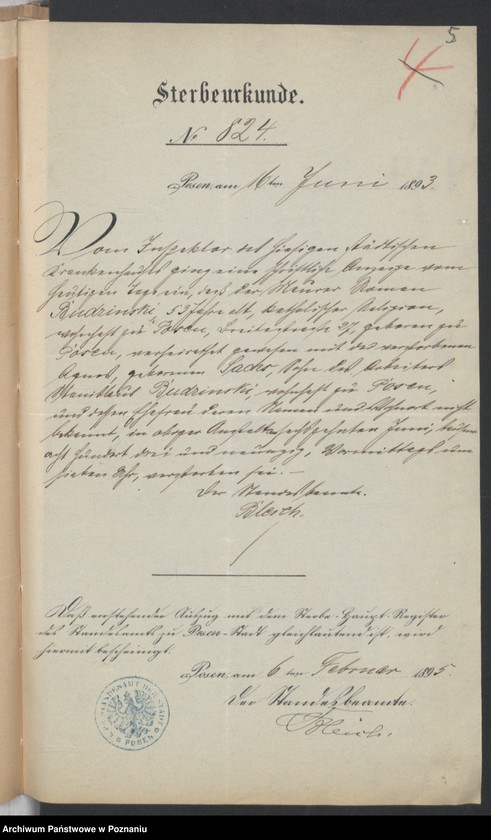 5
Sterbeurkunde.
№ 824.
Posen, am 16ten Juni 1893.
Vom Inspektor des hiesigen städtischen
Krankenhauses ging eine schriftliche Anzeige vom
heutigen Tage ein, daß der Maurer Roman
Rudzinski, 53 Jahre alt, katholischer Religion,
wohnhaft zu Posen, Breitestraße 27, geboren zu
Posen, verheirathet gewesen mit der verstorbenen
Agnes, geborenen Sachs, Sohn des Arbeiters
Stanislaus Rudzinski, wohnhaft zu Posen,
und dessen Ehefrau deren Namen und Wohnort nicht
bekannt, in obiger Anstalt am sechszehnten Juni, tausend
acht hundert drei und neunzig, Vormittags um
sieben Uhr, verstorben sei. –
Der Standesbeamte.
Bleich.
Daß vorstehender Auszug mit dem Sterbe-Haupt-Register
des Standesamts zu Posen-Stadt gleichlautend ist, wird
hiermit bescheinigt.
Posen, am 6ten Februar 1895.
Der Standesbeamte.
Bleich.
POSEN
Archiwum Państwowe w Poznaniu